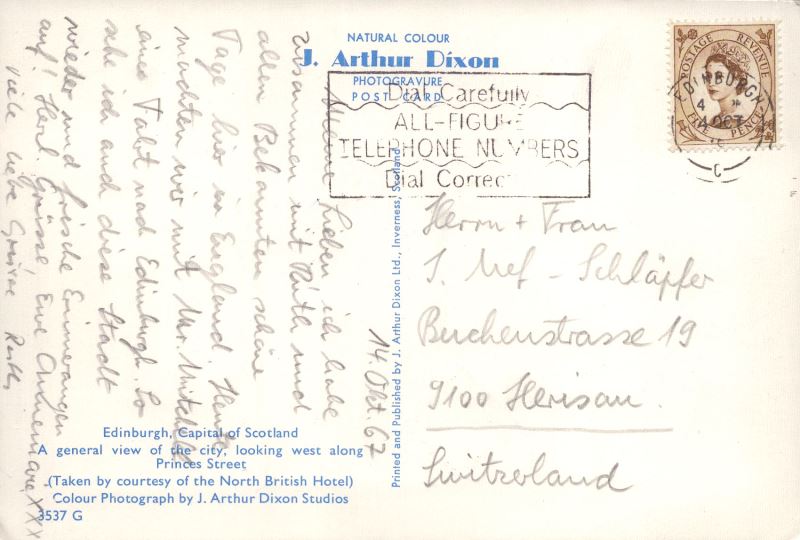 NATURAL COLOUR
J. Arthur Dixon
PHOTOGRAVURE
POST CARD
Dial Carefully
ALL-FIGURE
TELEPHONE NUMBERS
Dial Correc
POSTAGE REVENUE
FIVE PENCE
EDINBURGH
4
4 OCT
C
14. Okt. 67
Meine Lieben ich habe
zusammen mit Ruth und
allen Bekannten schöne
Tage hier in England. Heute
machten wir mit Mr. Mitchell
eine Fahrt nach Edinburgh. So
sehe ich auch diese Stadt
wieder und frische Erinnerungen
auf! Herzl. Grüsse Eure Annemarie XXX
Viele liebe Grüsse Ruth
Herrn + Frau
J. Nef - Schläpfer
Buchenstrasse 19
9100 Herisau
Switzerland
Printed and Published by J. Arthur Dixon Ltd., Inverness, Scotland
Edinburgh, Capital of Scotland
A general view of the city, looking west along
Princes Street
(Taken by courtesy of the North British Hotel)
Colour Photograph by J. Arthur Dixon Studios
3537 G